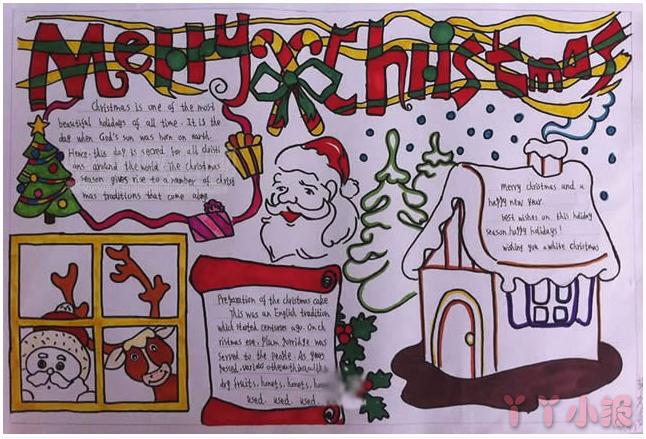 Merry Christmas
Christmas is one of the most
beautiful holidays of all time. It is the
day when God's son was born on earth.
Hence this day is secred for all christi
ans around the world. The Christmas
season gives rise to a number of christ
mas traditions that come alone
merry christmas and a
happy new year.
best wishes on this holiday
season.happy holidays!
wishing you a white christmas
Preparation of the christmas cake
This was an English tradition
which started centuries ago. On ch
ristmas eve. Plum porridge was
served to the people. As years
passed, various other
dry fruits, honets, honets, hon
used. used. used.
丫丫小报